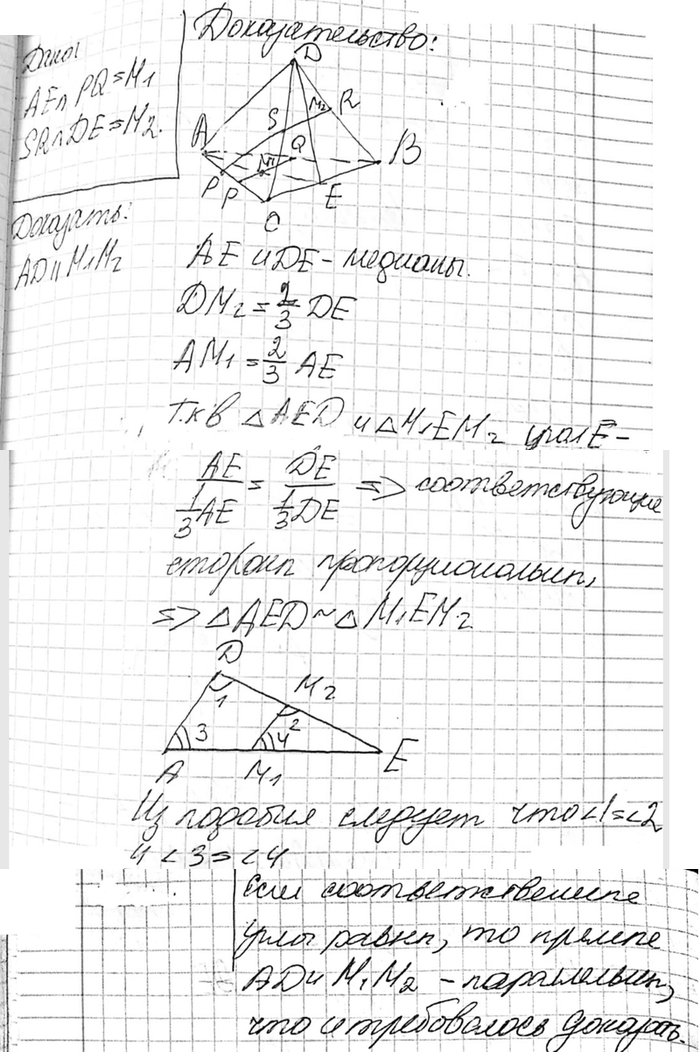 Дано:
AE∩PQ=M₁
SR∩DE=M₂.
Доказать:
AD||M₁M₂
Доказательство:
D
M₂ R
S
A
Q
B
M₁
P
P
E
C
AE и DE - медианы.
DM₂=2/3 DE
AM₁=2/3 AE
Т.к в △AED и △M₁EM₂ угол E-
AE/(1/3 AE) = DE/(1/3 DE) => соответствующие
стороны пропорциональны,
=> △AED ~ △M₁EM₂
D
M₂
1
2
3
4
A
M₁
E
Из подобия следует что <1=<2
и <3=<4
Если соответственные
углы равны, то прямые
AD и M₁M₂ - параллельны,
что и требовалось доказать.